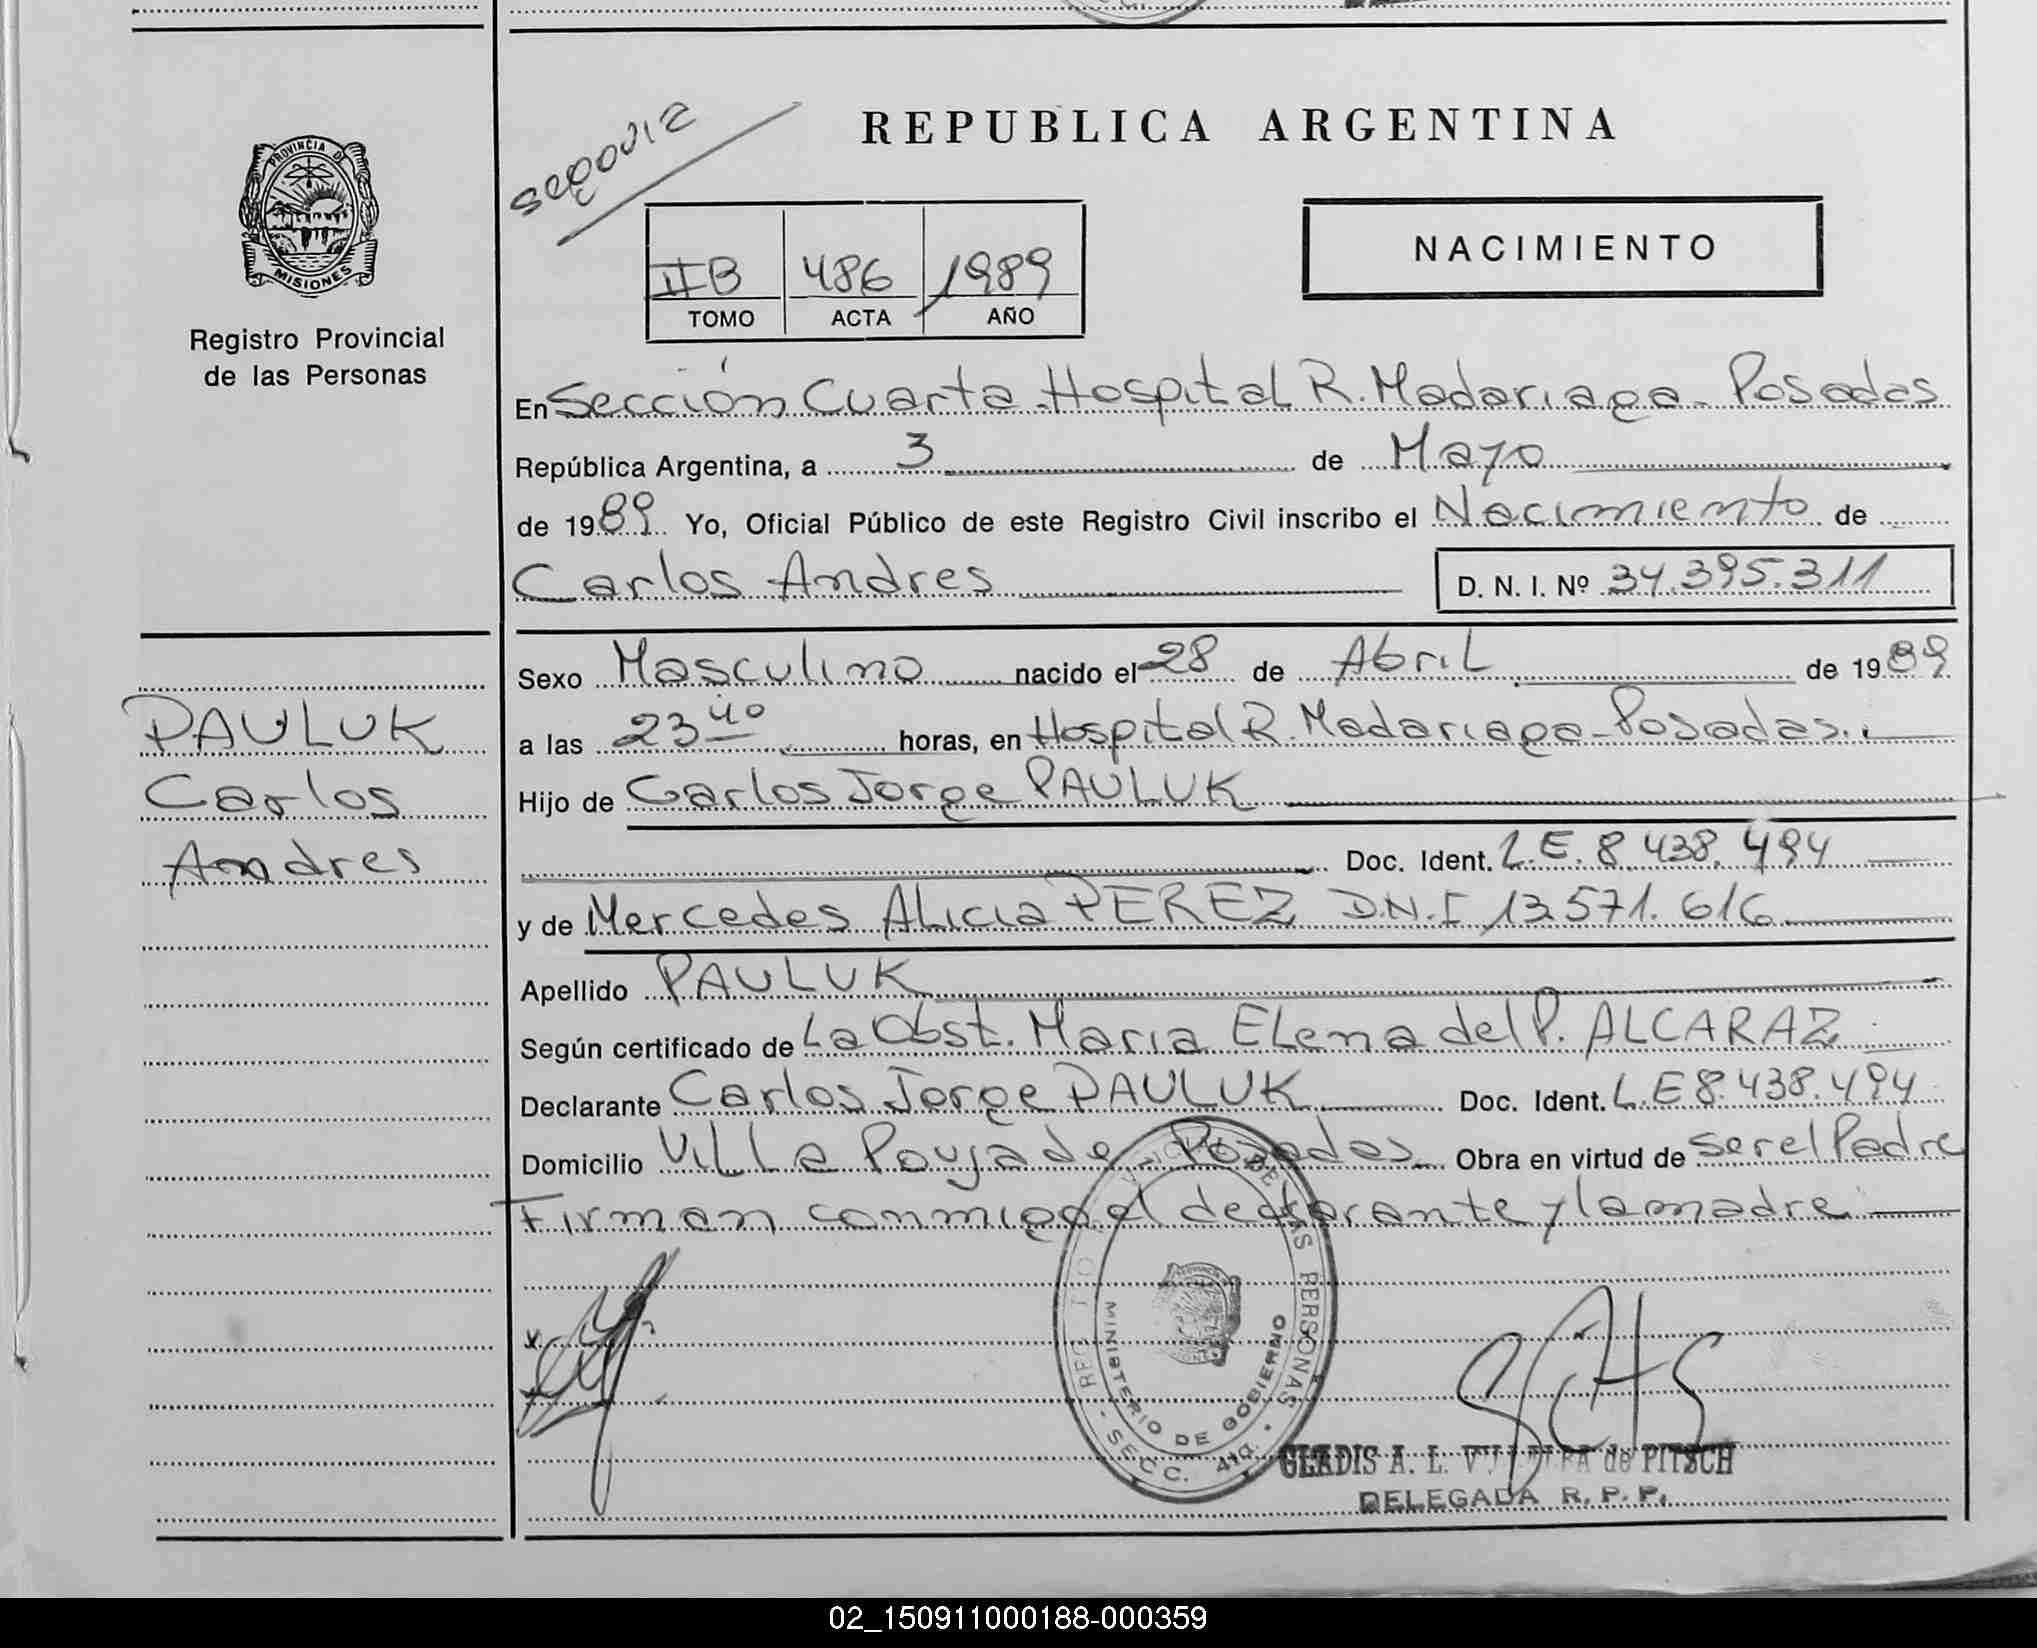 PROVINCIA DE
MISIONES
Registro Provincial
de las Personas
PAULUK
Carlos
Andres
Segovia
REPUBLICA ARGENTINA
NACIMIENTO
IIB 486 1989
TOMO ACTA AÑO
En Sección Cuarta - Hospital R. Madariaga - Posadas
República Argentina, a 3 de Mayo
de 1989 Yo, Oficial Público de este Registro Civil inscribo el Nacimiento de
Carlos Andres D. N. I. Nº 34.395.311
Sexo Masculino nacido el 28 de Abril de 1989
a las 23 40 horas, en Hospital R. Madariaga - Posadas.
Hijo de Carlos Jorge PAULUK
Doc. Ident. L.E. 8.438.494
y de Mercedes Alicia PEREZ D.N.I 13.571.616
Apellido PAULUK
Según certificado de La Obst. Maria Elena del P. ALCARAZ
Declarante Carlos Jorge PAULUK Doc. Ident. L.E 8.438.494
Domicilio Villa Poujade - Posadas Obra en virtud de ser el Padre
Firman conmigo el declarante y la madre
DE LAS PERSONAS
MINISTERIO DE GOBIERNO
SECC. 4ta.
GLADIS A. L. VILLALBA de PITSCH
DELEGADA R. P. P.
02_150911000188-000359